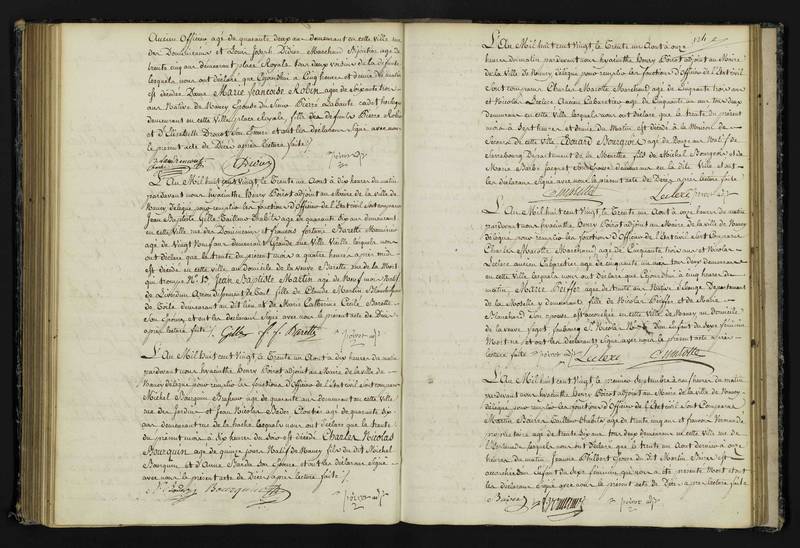 Ancien Officier agé de quarante deux ans demeurant en cette Ville rue
des Dominicains et Louis Joseph Didier Marchand Bijoutier agé de
trente cinq ans demeurant place Royale tous deux voisins de la défunte
lesquels nous ont déclaré que cejourdhui à Cinq heures et demie du matin
est décédée Dame Marie françoise Robin agée de Soixante trois
ans Native de Nancy Epouse du Sieur Pierre Labaute cadet horloger
demeurant en cette Ville place Royale, fille des défunts Pierre Robin
et D'Elisabeth Drouot Son Epouse et ont les déclarans Signé avec nous
le présent acte de Décès après lecture faite
L'An Mil huit cent Vingt, le Trente un Aout à dix heures du matin
pardevant nous hyacinthe Henry Poirot adjoint au Maire de la ville de
Nancy délégué pour remplir les fonctions d'Officier de l'Etat civil sont comparus
Jean Baptiste Gille Tailleur d'habits agé de quarante dix ans demeurant
en cette Ville rue des Dominicains, et françois fortuné Barette Menuisier
agé de Vingt Neuf ans demeurant Grande rue Ville Vieille lesquels nous
ont déclaré que le trente du présent mois à quatre heures après midi
est décédé en cette ville, au domicile de la veuve Barette rue de la Mont
qui trompe No 15, Jean Baptiste Martin agé de Neuf ans Natif
de Liverdun Arrondissement de Toul fils de Claude Martin
de Toile demeurant au dit lieu et de Marie Catherine Cécile Barette
Son Epouse et ont les déclarans Signé avec nous le présent acte de Décès
après lecture faite
Gille f. f. Barette
L'An Mil huit cent Vingt le Trente un Aout à dix heures du matin
pardevant nous hyacinthe Henry Poirot adjoint au Maire de la ville de
Nancy délégué pour remplir les fonctions d'Officier de l'Etat civil sont comparus
Michel Bourquin Brasseur agé de quarante ans demeurant en cette Ville
rue des Jardins et Jean Nicolas Bedor Cloutier agé de quarante dix
ans demeurant rue de la hache lesquels nous ont déclaré que le trente
du présent mois à dix heures du Soir est décédé Charles Nicolas
Bourquin agé de quinze jours Natif de Nancy fils du dit Michel
Bourquin et d'Anne Barde Son Epouse et ont les déclarans Signé
avec nous le présent acte de Décès après lecture faite
Bourquin
124
L'An Mil huit cent Vingt, le Trente un Aout à onze
heures du matin pardevant nous hyacinthe Henry Poirot adjoint au Maire
de la Ville de Nancy délégué pour remplir les fonctions d'Officier de l'Etat Civil
sont comparus Charles Marotte Marchand agé de Cinquante trois ans
et Nicolas Leclere Ancien Cabaretier agé de Cinquante un ans tous deux
demeurant en cette Ville lesquels nous ont déclaré que le trente du présent
mois à Sept heures et demie du Matin est décédé à la Maison de
Secours de cette Ville Edouard Bourgeois agé de Douze ans Natif de
Sarrebourg Département de la Meurthe fils de Michel Bourgeois et de
Marie Barbe Jacquot Son Epouse demeurans en la dite Ville et ont
les déclarans Signé avec nous le présent acte de Décès, après lecture faite
Marotte Leclere
L'An Mil huit cent Vingt, le Trente un Aout à onze heures du matin
pardevant nous hyacinthe Henry Poirot adjoint au Maire de la ville de Nancy
délégué pour remplir les fonctions d'Officier de l'Etat civil sont Comparus
Charles Marotte Marchand agé de Cinquante trois ans et Nicolas
Leclere ancien Cabaretier agé de cinquante un ans tous deux demeurant
en cette Ville lesquels nous ont déclaré que Cejourdhui à cinq heures du
matin, Marie Peiffer agée de trente ans Native Département
de la Moselle y demeurante fille de Nicolas Peiffer et de Marie
Blanchard Son epouse est accouchée en cette Ville de Nancy au domicile
de la veuve faubourg St Nicolas No d'un Enfant du Sexe féminin
Mort né et ont les déclarans Signé avec nous le présent acte après
lecture faite
Leclere Marotte
L'An Mil huit cent Vingt, le premier Septembre à neuf heures du matin
pardevant nous hyacinthe Henry Poirot adjoint au Maire de la ville de Nancy
délégué pour remplir les fonctions d'Officier de l'Etat Civil sont Comparus
Martin Tailleur d'habits agé de trente cinq ans et francois
propriétaire agé de trente six ans tous deux demeurant en cette Ville rue de
lesquels nous ont Déclaré que le trente un Aout dernier à onze
heures du matin, Jeanne Philbert Epouse du dit Martin est
accouchée d'un Enfant du Sexe féminin, qui nous a été présenté Mort et ont
les déclarans Signé avec nous le présent acte de Décès, après lecture faite